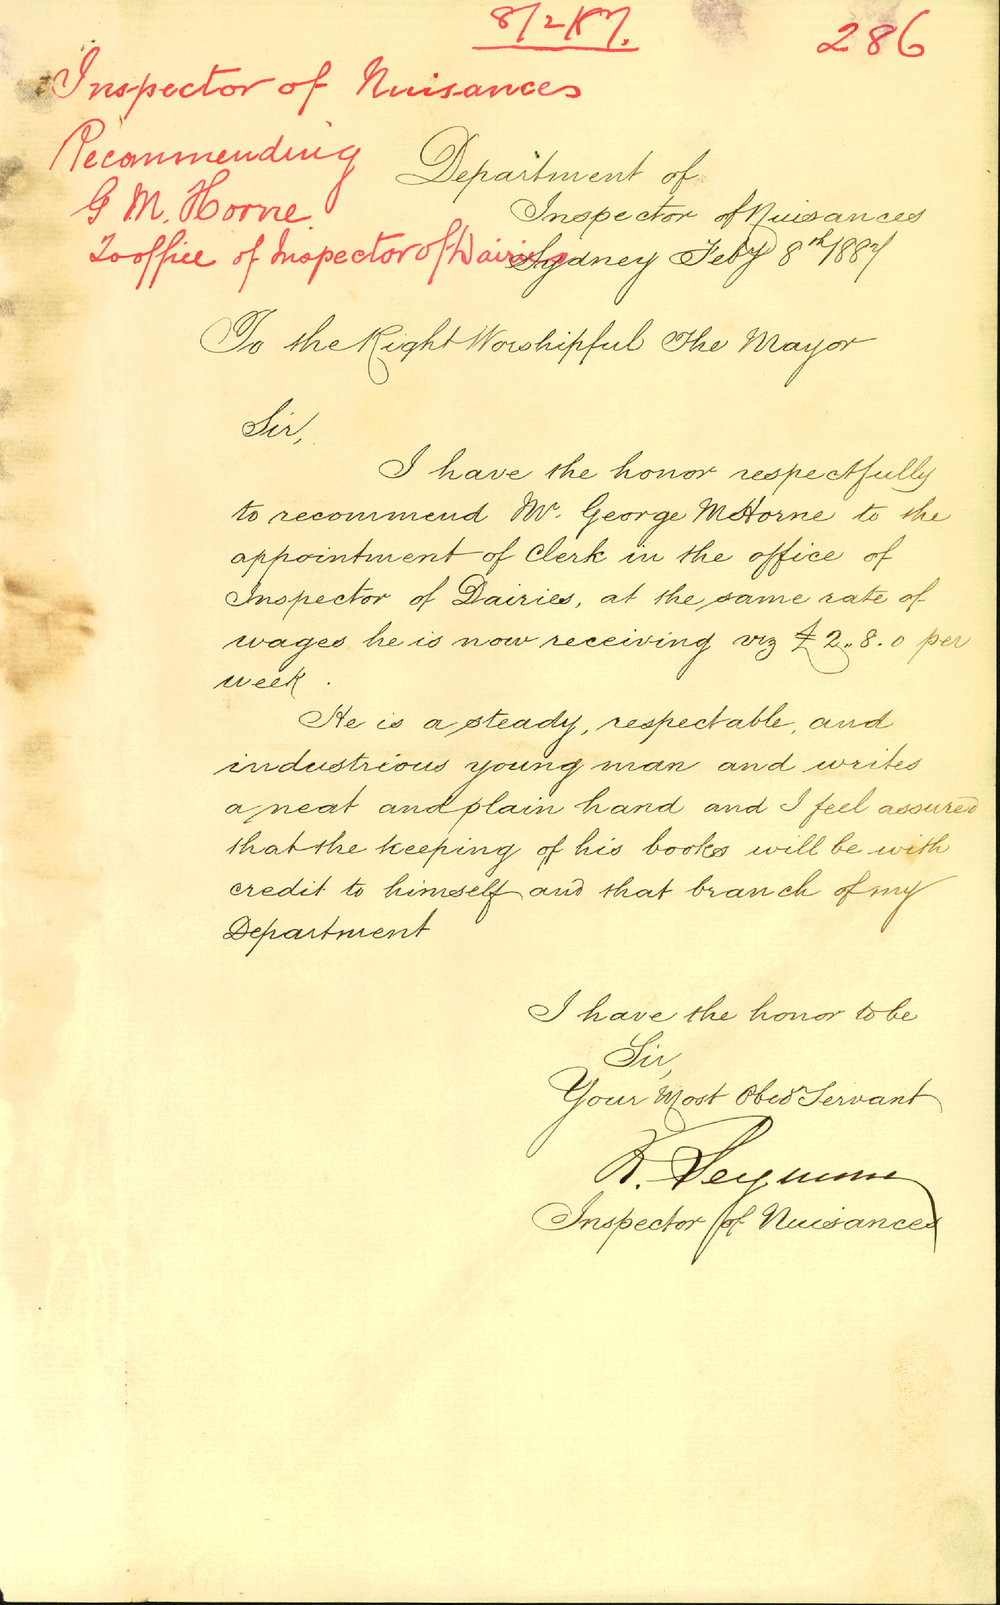 8/2/87.
286
Inspector of Nuisances
Recommending
G M. Horne
To office of Inspector of Dairies
Department of
Inspector of Nuisances
Sydney Feby 8th 1887
To the Right Worshipful The Mayor
Sir,
I have the honor respectfully
to recommend Mr. George M Horne to the
appointment of Clerk in the office of
Inspector of Dairies, at the same rate of
wages he is now receiving viz £2..8.0 per
week.
He is a steady, respectable, and
industrious young man and writes
a neat and plain hand and I feel assured
that the keeping of his books will be with
credit to himself and that branch of my
Department
I have the honor to be
Sir,
Your Most Obed Servant
R. Seymour
Inspector of Nuisances